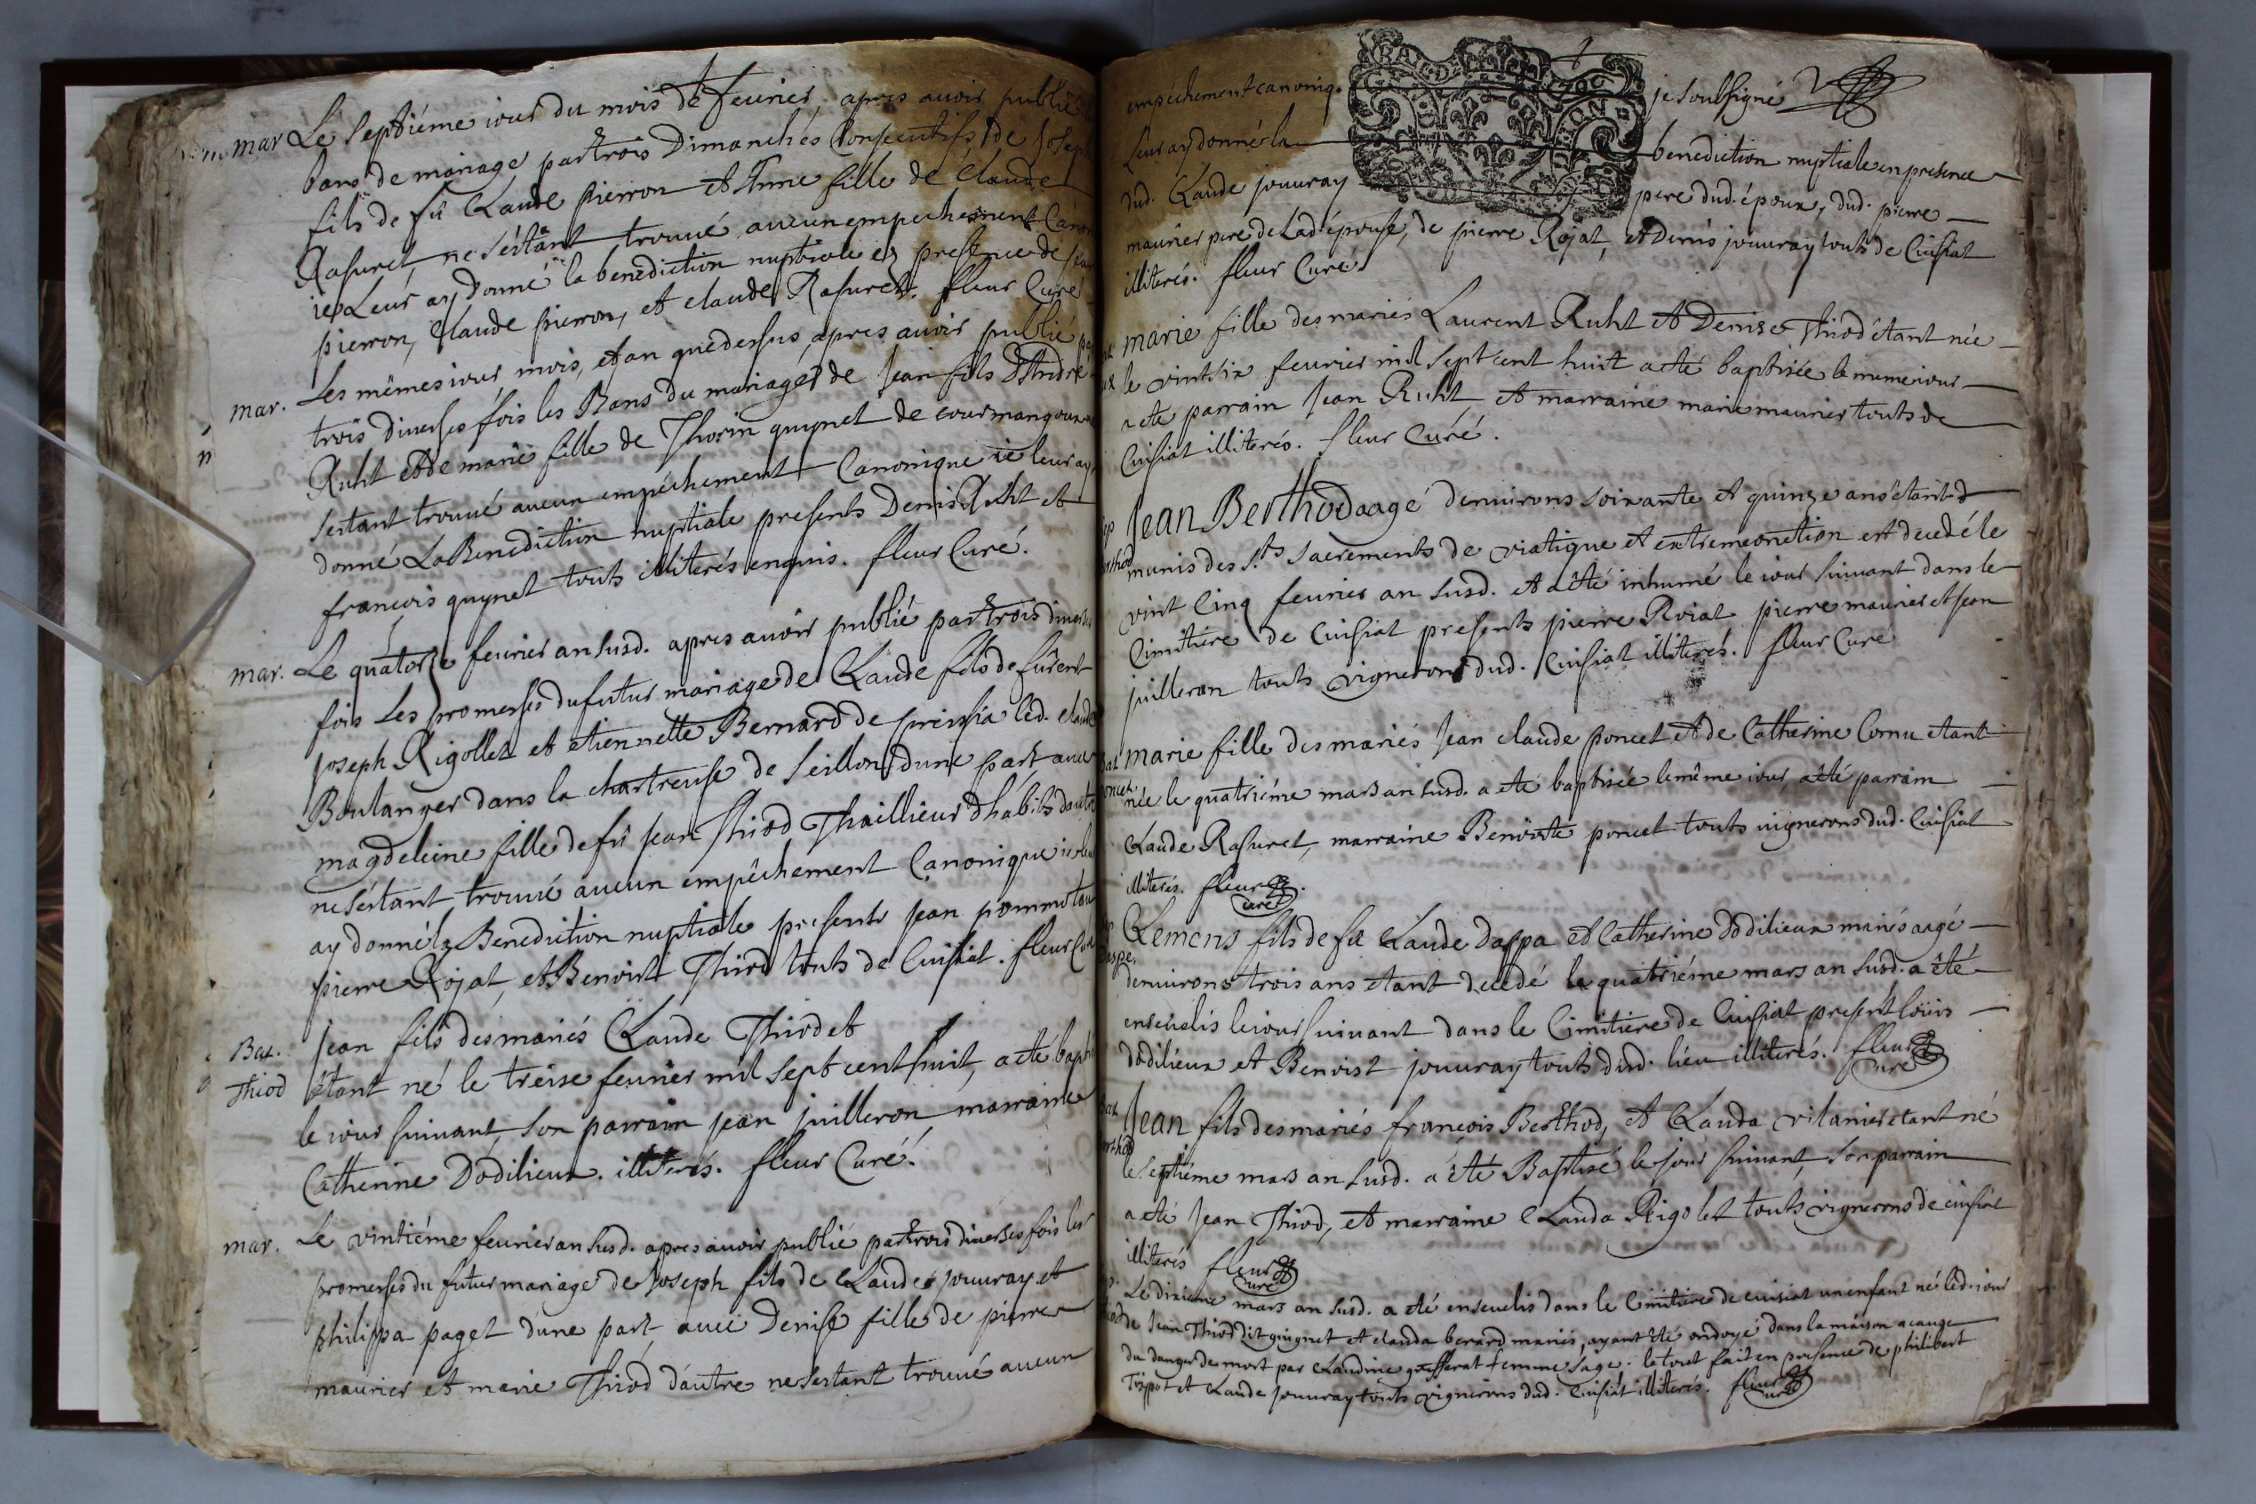 mar Le septiéme iour du mois de feurier, apres auoir publié
bans de mariage par trois Dimanches Consecutifs de Joseph
fils de fû Claude pierron et Anne fille de Claude
Rasurel, ne séstant trouué aucun empechement Canon
ie Leur ay donné la benediction nuptiale en presence de
pierron, Claude pierron, et claude Rasurel. fleur Curé
mar. Les mêmes iour mois, et an que dessus, apres auoir publié par
trois diuerses fois les Bans du mariage de Jean fils d'André
Ruht et de marie fille de Thorin guynet de courmangoux
sestant trouué aucun empéchement Canonique ie leur ay
donné La Benediction nuptiale presents Denis Ruht et
francois guynet touts illiterés enquis. fleur Curé.
mar. Le quatorze feurier an susd. apres auoir publié par trois diuerses
fois Les promesses du futur mariage de Claude fils de fûrent
Joseph Rigollet et etiennette Bernard de pressia led. claude
Boulanger dans la chartreuse de seillon dune part auec
magdeleine fille de fû Jean Thiod Thaillieur d'habits dautre
ne séstant trouué aucun empêchement Canonique ie leur
ay donné la Benediction nuptiale presents Jean
pierre Rojat, et Benoist Thiod touts de Cuisiat. fleur Curé
Bat. Jean fils des mariés Claude Thiod et
Thiod étant né le treise feurier mil sept cent huit, a eté bapti
le iour suiuant, son parrain Jean juilleron marraine
Catherine Dodilieux. illiterés. fleur Curé.
mar. Le vintiéme feurier an susd. apres auoir publié par trois diuerses fois les
promesses du futur mariage de Joseph fils de Claude jouuray et
philippa paget dune part auec Denise fille de pierre
maurier et marie Thiod dautre ne sestant trouué aucun
empéchement canoniq. je soussigné
Leur ay donné la benediction nuptiale en presence
dud. Claude jouuray pere dud. époux, dud. pierre
maurier pere de Lad. épouse, de pierre Rojat, et Denis jouuray touts de Cuisiat
illiterés. fleur Curé.
marie fille des mariés Laurent Ruht et Denise Thiod étant née
le vint six feurier mil sept cent huit a eté baptisée le meme iour
a ete parrain Jean Ruht et marraine marie maurier touts de
Cuisiat illiterés. fleur Curé.
Jean Berthod aagé denuirons soixante et quinze ans étant
munis des Sts sacrements de viatique et extremeonction est decedé le
vint Cinq feurier an susd. et a êté inhumé le iour suiuant dans le
Cimitiere de Cuisiat presents pierre Roiat pierre maurier et Jean
juilleron touts vignerons dud. Cuisiat illiterés. fleur Curé
marie fille des mariés Jean claude poncet et de Catherine Cornu etant
née le quatriéme mars an susd. a eté baptisée le même iour, a eté parrain
Claude Rasurel, marraine Benoiste poncet touts uignerons dud. Cuisiat
illiterés. fleur curé
Clemens fils de fû Claude Daspa et Catherine Dodilieux mariés aagé
denuirons trois ans etant decedé le quatriéme mars an susd. a êté
enseuelis le iour suiuant dans le Cimitiere de Cuisiat present Loüis
dodilieux et Benoist jouuray touts dud. lieu illiterés. fleur curé
Jean fils des mariés francois Berthod, et Clauda vilanier etant né
le septiéme mars an susd. a été Baptisé le jour suiuant, son parrain
a eté Jean Thiod, et marraine Clauda Rigolet touts vignerons de cuisiat
illiterés fleur curé
Le dixieme mars an susd. a eté enseuelis dans le Cimitiere de cuisiat un enfant né led. iour
de Jean Thiod dit guignet et clauda berard mariés, ayant êté ondoyé dans la maison a cause
du danger de mort par Claudine femme sage. le tout fait en presence de philibert
Trippot et Claude jouuray touts vignerons dud. Cuisiat illiterés. fleur curé